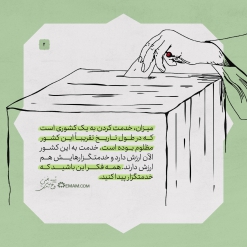 ۲
میزان، خدمت کردن به یک کشوری است
که در طول تاریخ تقریباً این کشور
مظلوم بوده است، خدمت به این کشور
الآن ارزش دارد و خدمتگزارهایش هم
ارزش دارند. همه فکر این باشید که
خدمتگزار پیدا کنید.
EMAM.COM